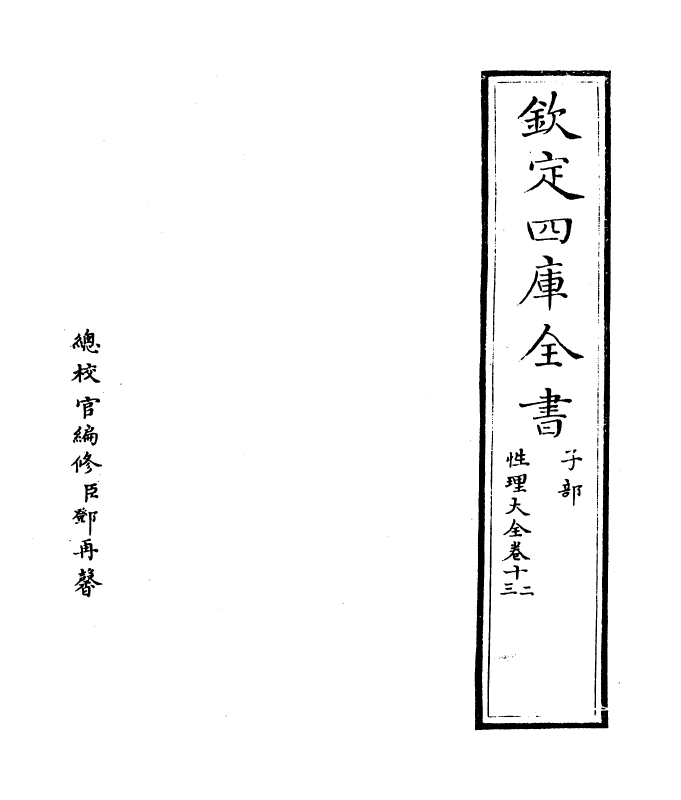 欽定四庫全書
子部
性理大全卷十二三
總校官編修臣鄧再馨